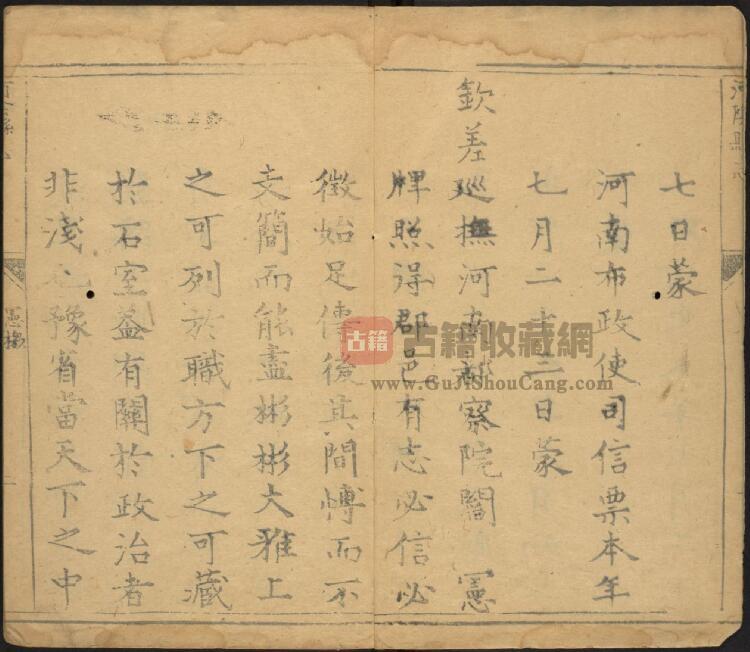 七日蒙
河南布政使司信票本年
七月二十三日蒙
欽差巡撫河南都察院閻 憲
牌照得郡邑有志必信必
徵始足傳後其間愽而不
支簡而能盡彬彬大雅上
之可列於職方下之可藏
於石室葢有關於政治者
非淺也豫省當天下之中
憲檄
古籍
古籍收藏網
www.GuJiShouCang.com